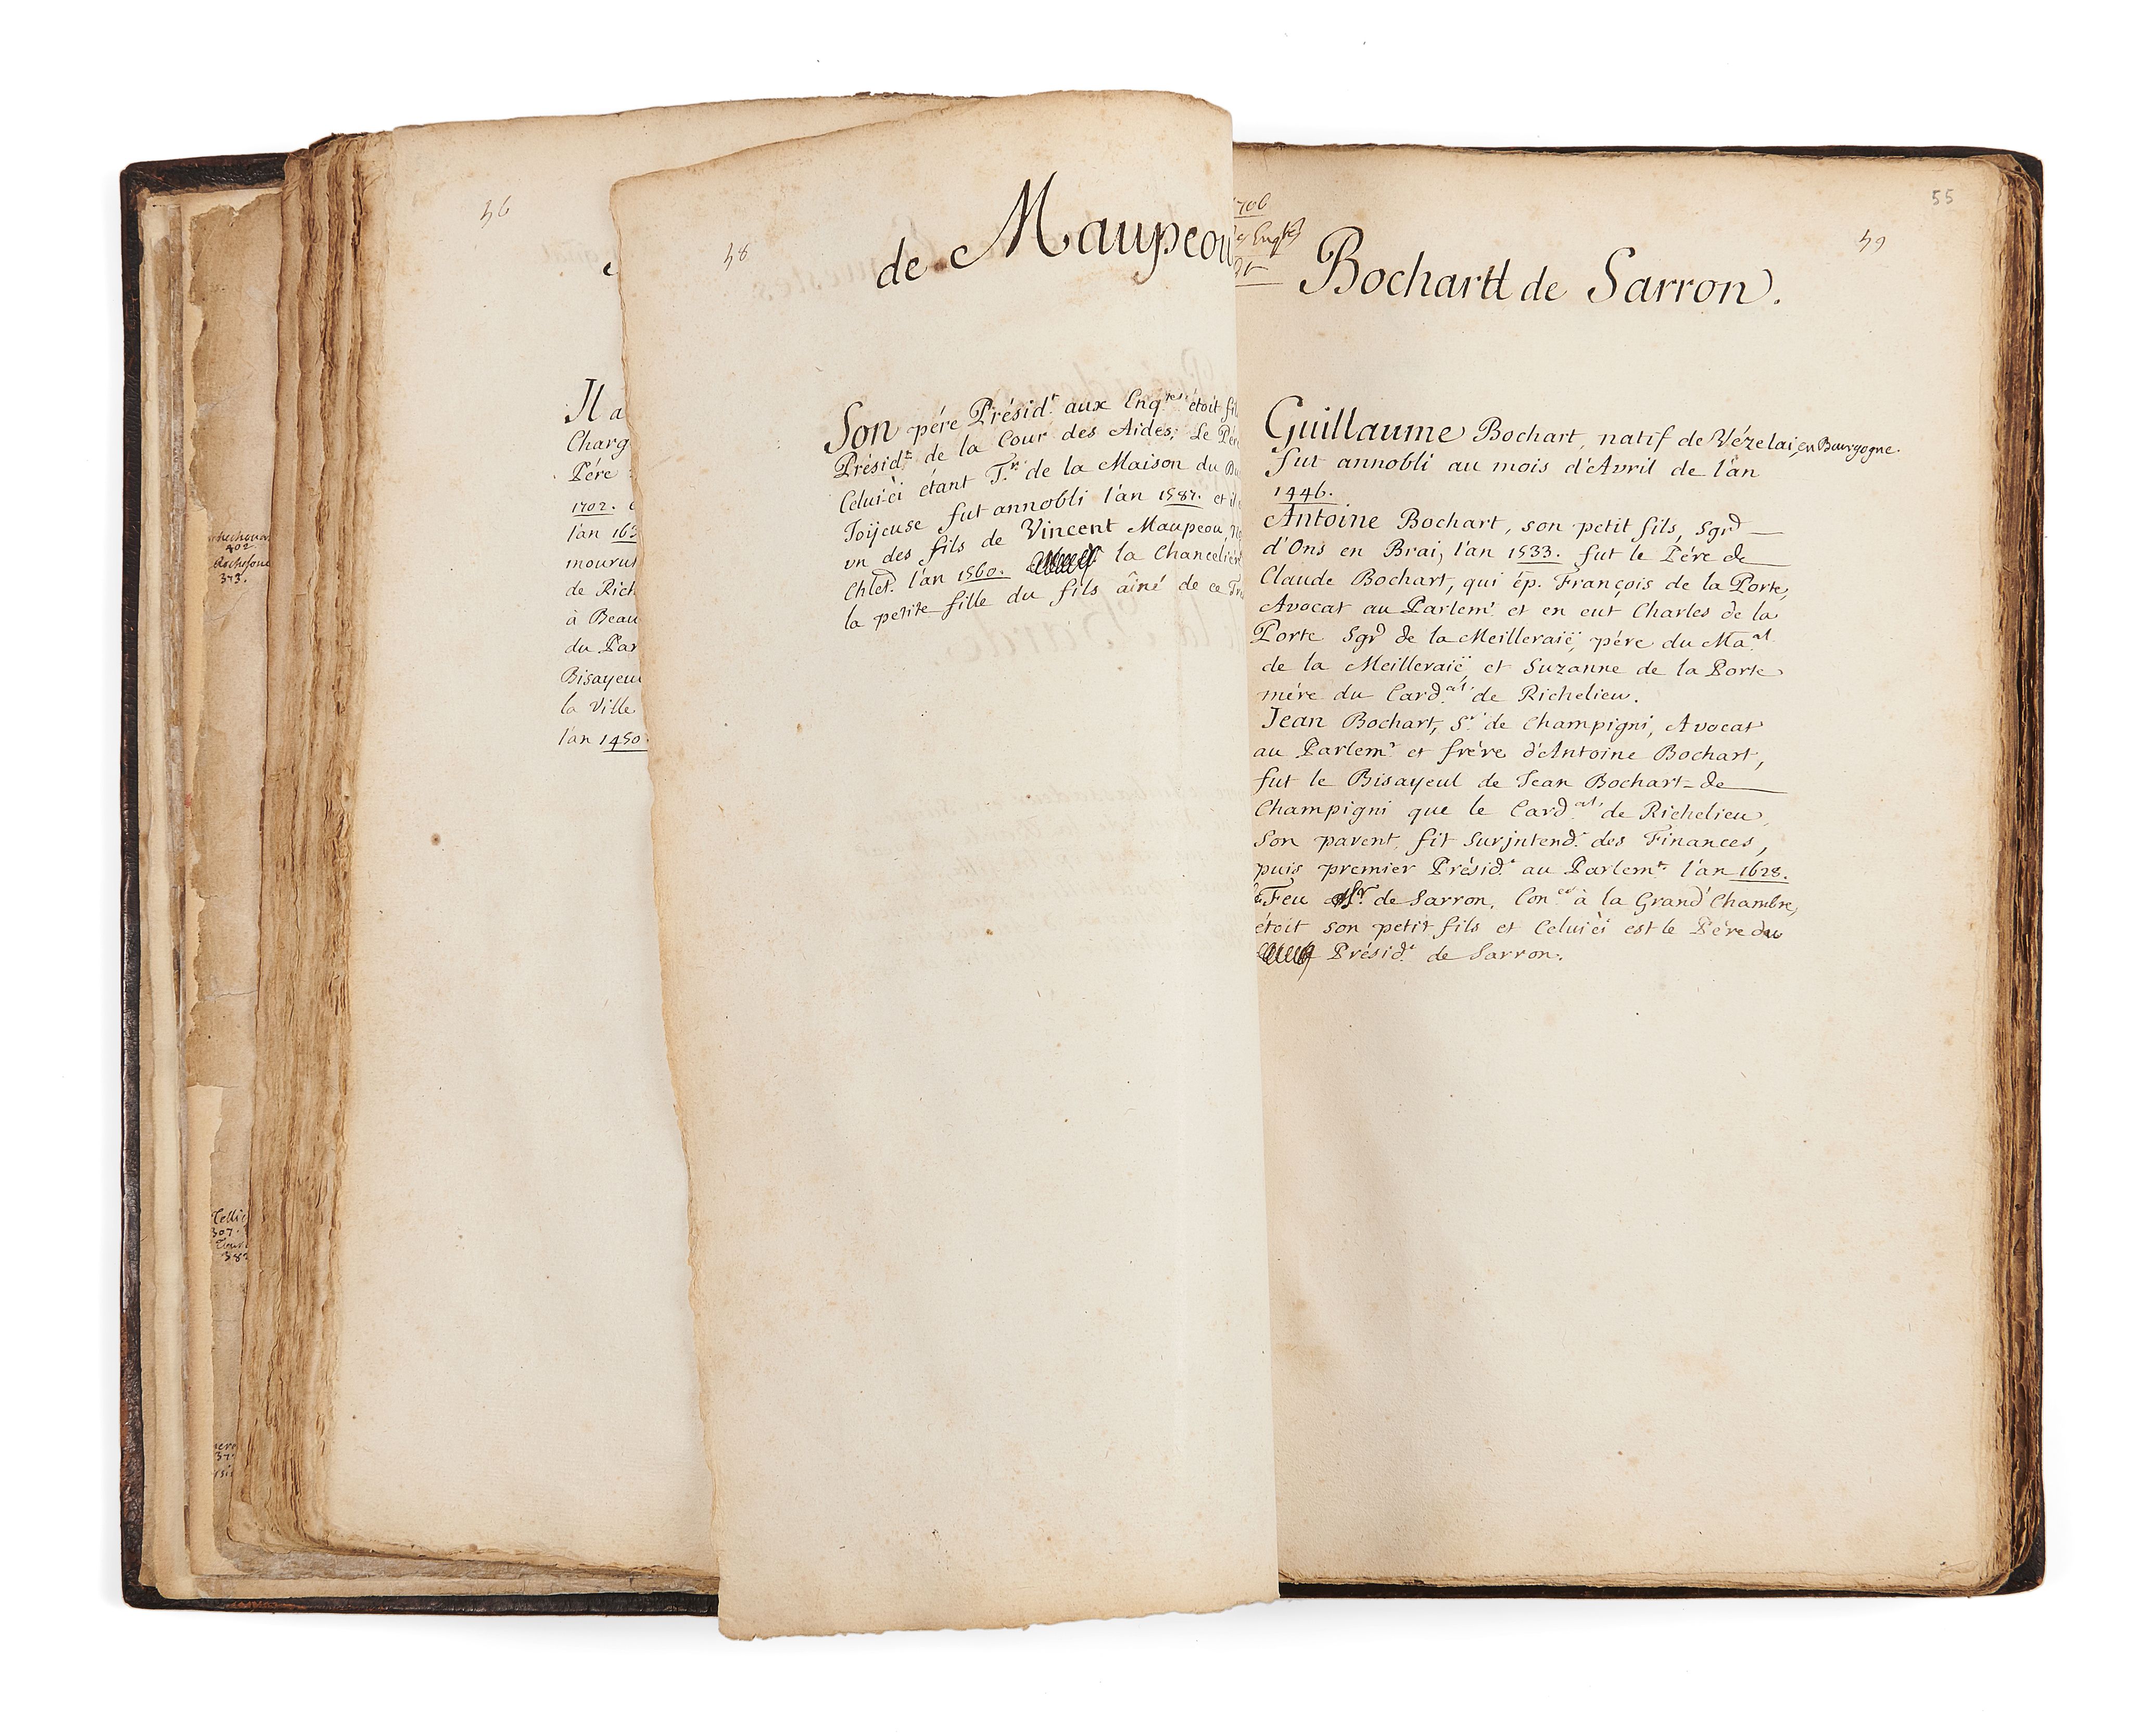 56
Il a
Charg
Pére
1702.
l'an 163
mourut
de Rich
à Beau
du Par
Bisayeul
la Ville
l'an 1450.
58
de Maupeou
Son pére Présid.t aux Enq.tes étoit fil
Présid.t de la Cour des Aides; Le Pér
Celuici étant T.r de la Maison du Du
Joijeuse fut annobli l'an 1587. et il
un des fils de Vincent Maupeou, No
Chlet. l'an 1560. la Chanceliére
la petite fille du fils aîné de ce Tr
706
55
59
Bochartt de Sarron.
Guillaume Bochart, natif de Vézelai, en Bourgogne.
fut annobli au mois d'Avril de l'an
1446.
Antoine Bochart, son petit fils, Sgr
d'Ons en Brai, l'an 1533. fut le Pére de
Claude Bochart, qui ép. François de la Porte,
Avocat au Parlem.t et en eut Charles de la
Porte Sgr de la Meilleraië, pére du Ma.al
de la Meilleraië et Suzanne de la Porte
mére du Card.al de Richelieu.
Jean Bochart, S.r de Champigni, Avocat
au Parlem.t et frére d'Antoine Bochart,
fut le Bisayeul de Jean Bochart-de
Champigni que le Card.al de Richelieu,
Son parent, fit Surjntend.t des Finances,
puis premier Présid.t au Parlem.t l'an 1628.
Feu de Sarron, Con.er à la Grand' Chambre,
étoit son petit fils et Celuici est le Pére du
Présid.t de Sarron.
402.
Rochefouc
373.
Tellie
307.
382
37